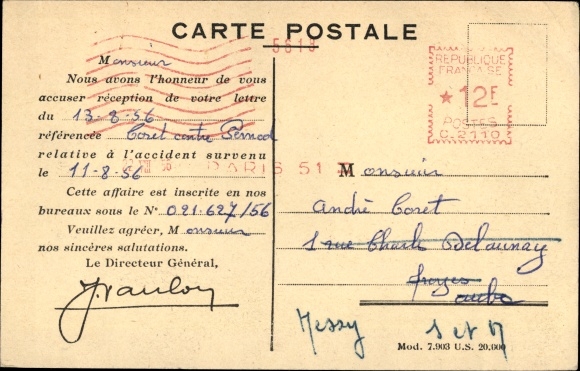 CARTE POSTALE
5618
RÉPUBLIQUE
FRANÇAISE
★ 12F
POSTES
C.2110
PARIS 51
Monsieur
Nous avons l'honneur de vous
accuser réception de votre lettre
du 13-8-56
référencée Coret contre Pernod
relative à l'accident survenu
le 11-8-56
Cette affaire est inscrite en nos
bureaux sous le N° 021.627/56
Veuillez agréer, Monsieur
nos sincères salutations.
Le Directeur Général,
Monsieur
André Coret
1 rue Charles Delaunay
Troyes
Aube
Messy S et M
Mod. 7.903 U.S. 20.000